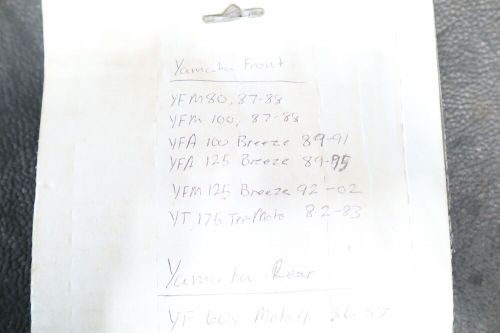 Yamaha Front
YFM80, 87-88
YFM 100, 87-88
YFA 100 Breeze 89-91
YFA 125 Breeze 89-95
YFM 125 Breeze 92-02
YT 175 Tri-Moto 82-83
Yamaha Rear
YF 60s Moto4 86-87